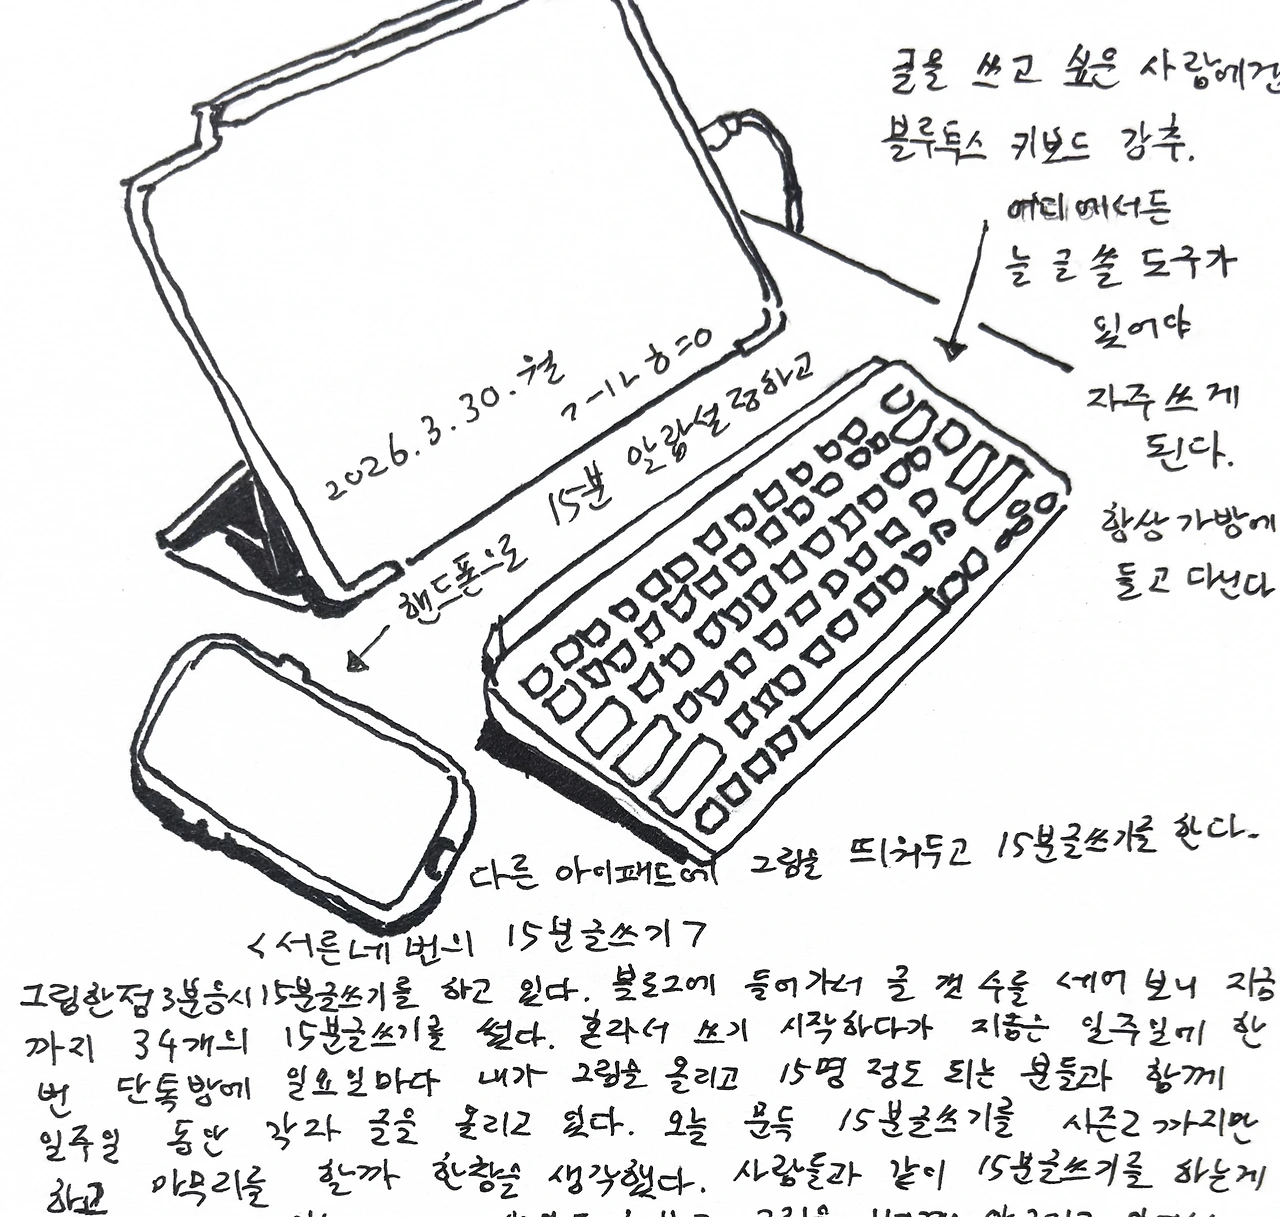 글을 쓰고 싶은 사람에겐
블루투스 키보드 강추.
어디에서든
늘 글 쓸 도구가
있어야
자주 쓰게
된다.
항상 가방에
들고 다닌다
2026.3.30.월
15분 알람설정하고
핸드폰으로
다른 아이패드에 그림을 띄워두고 15분글쓰기를 한다.
<서른네 번의 15분글쓰기>
그림한점3분응시15분글쓰기를 하고 있다. 블로그에 들어가서 글 갯수를 세어 보니 지금
까지 34개의 15분글쓰기를 썼다. 혼자서 쓰기 시작하다가 지금은 일주일에 한
번 단톡방에 일요일마다 내가 그림을 올리고 15명 정도 되는 분들과 함께
일주일 동안 각자 글을 올리고 있다. 오늘 문득 15분글쓰기를 시즌2까지만
하고 마무리를 할까 한참을 생각했다. 사람들과 같이 15분글쓰기를 하는게